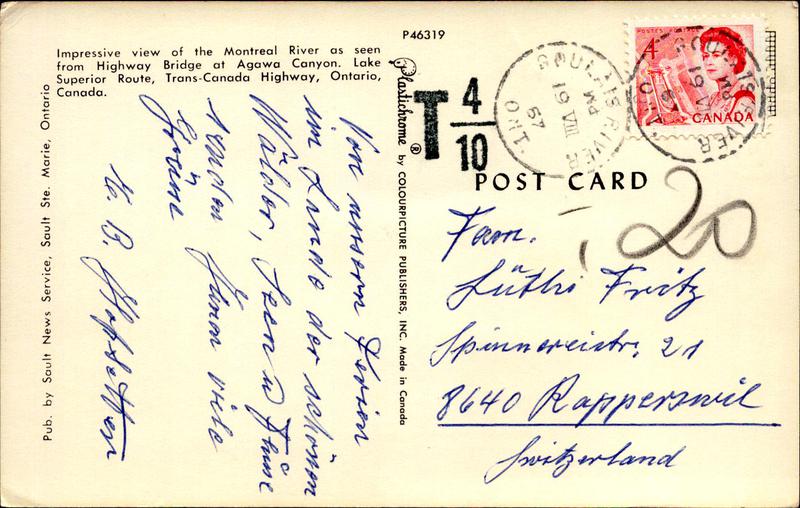 P46319
Impressive view of the Montreal River as seen
from Highway Bridge at Agawa Canyon. Lake
Superior Route, Trans-Canada Highway, Ontario,
Canada.
Pub. by Sault News Service, Sault Ste. Marie, Ontario
Plastichrome ® by COLOURPICTURE PUBLISHERS, INC. Made in Canada
T 4/10
GOULAIS RIVER
PM
19 VIII
67
ONT.
POSTES POSTAGE
4
CANADA
POST CARD
20
Von unsern Ferien
im Lande der schönen
Wälder, Seen u. Flüsse
senden Ihnen viele
Grüsse
Fam.
Lüthi Fritz
Spinnereistr. 21
8640 Rapperswil
Switzerland